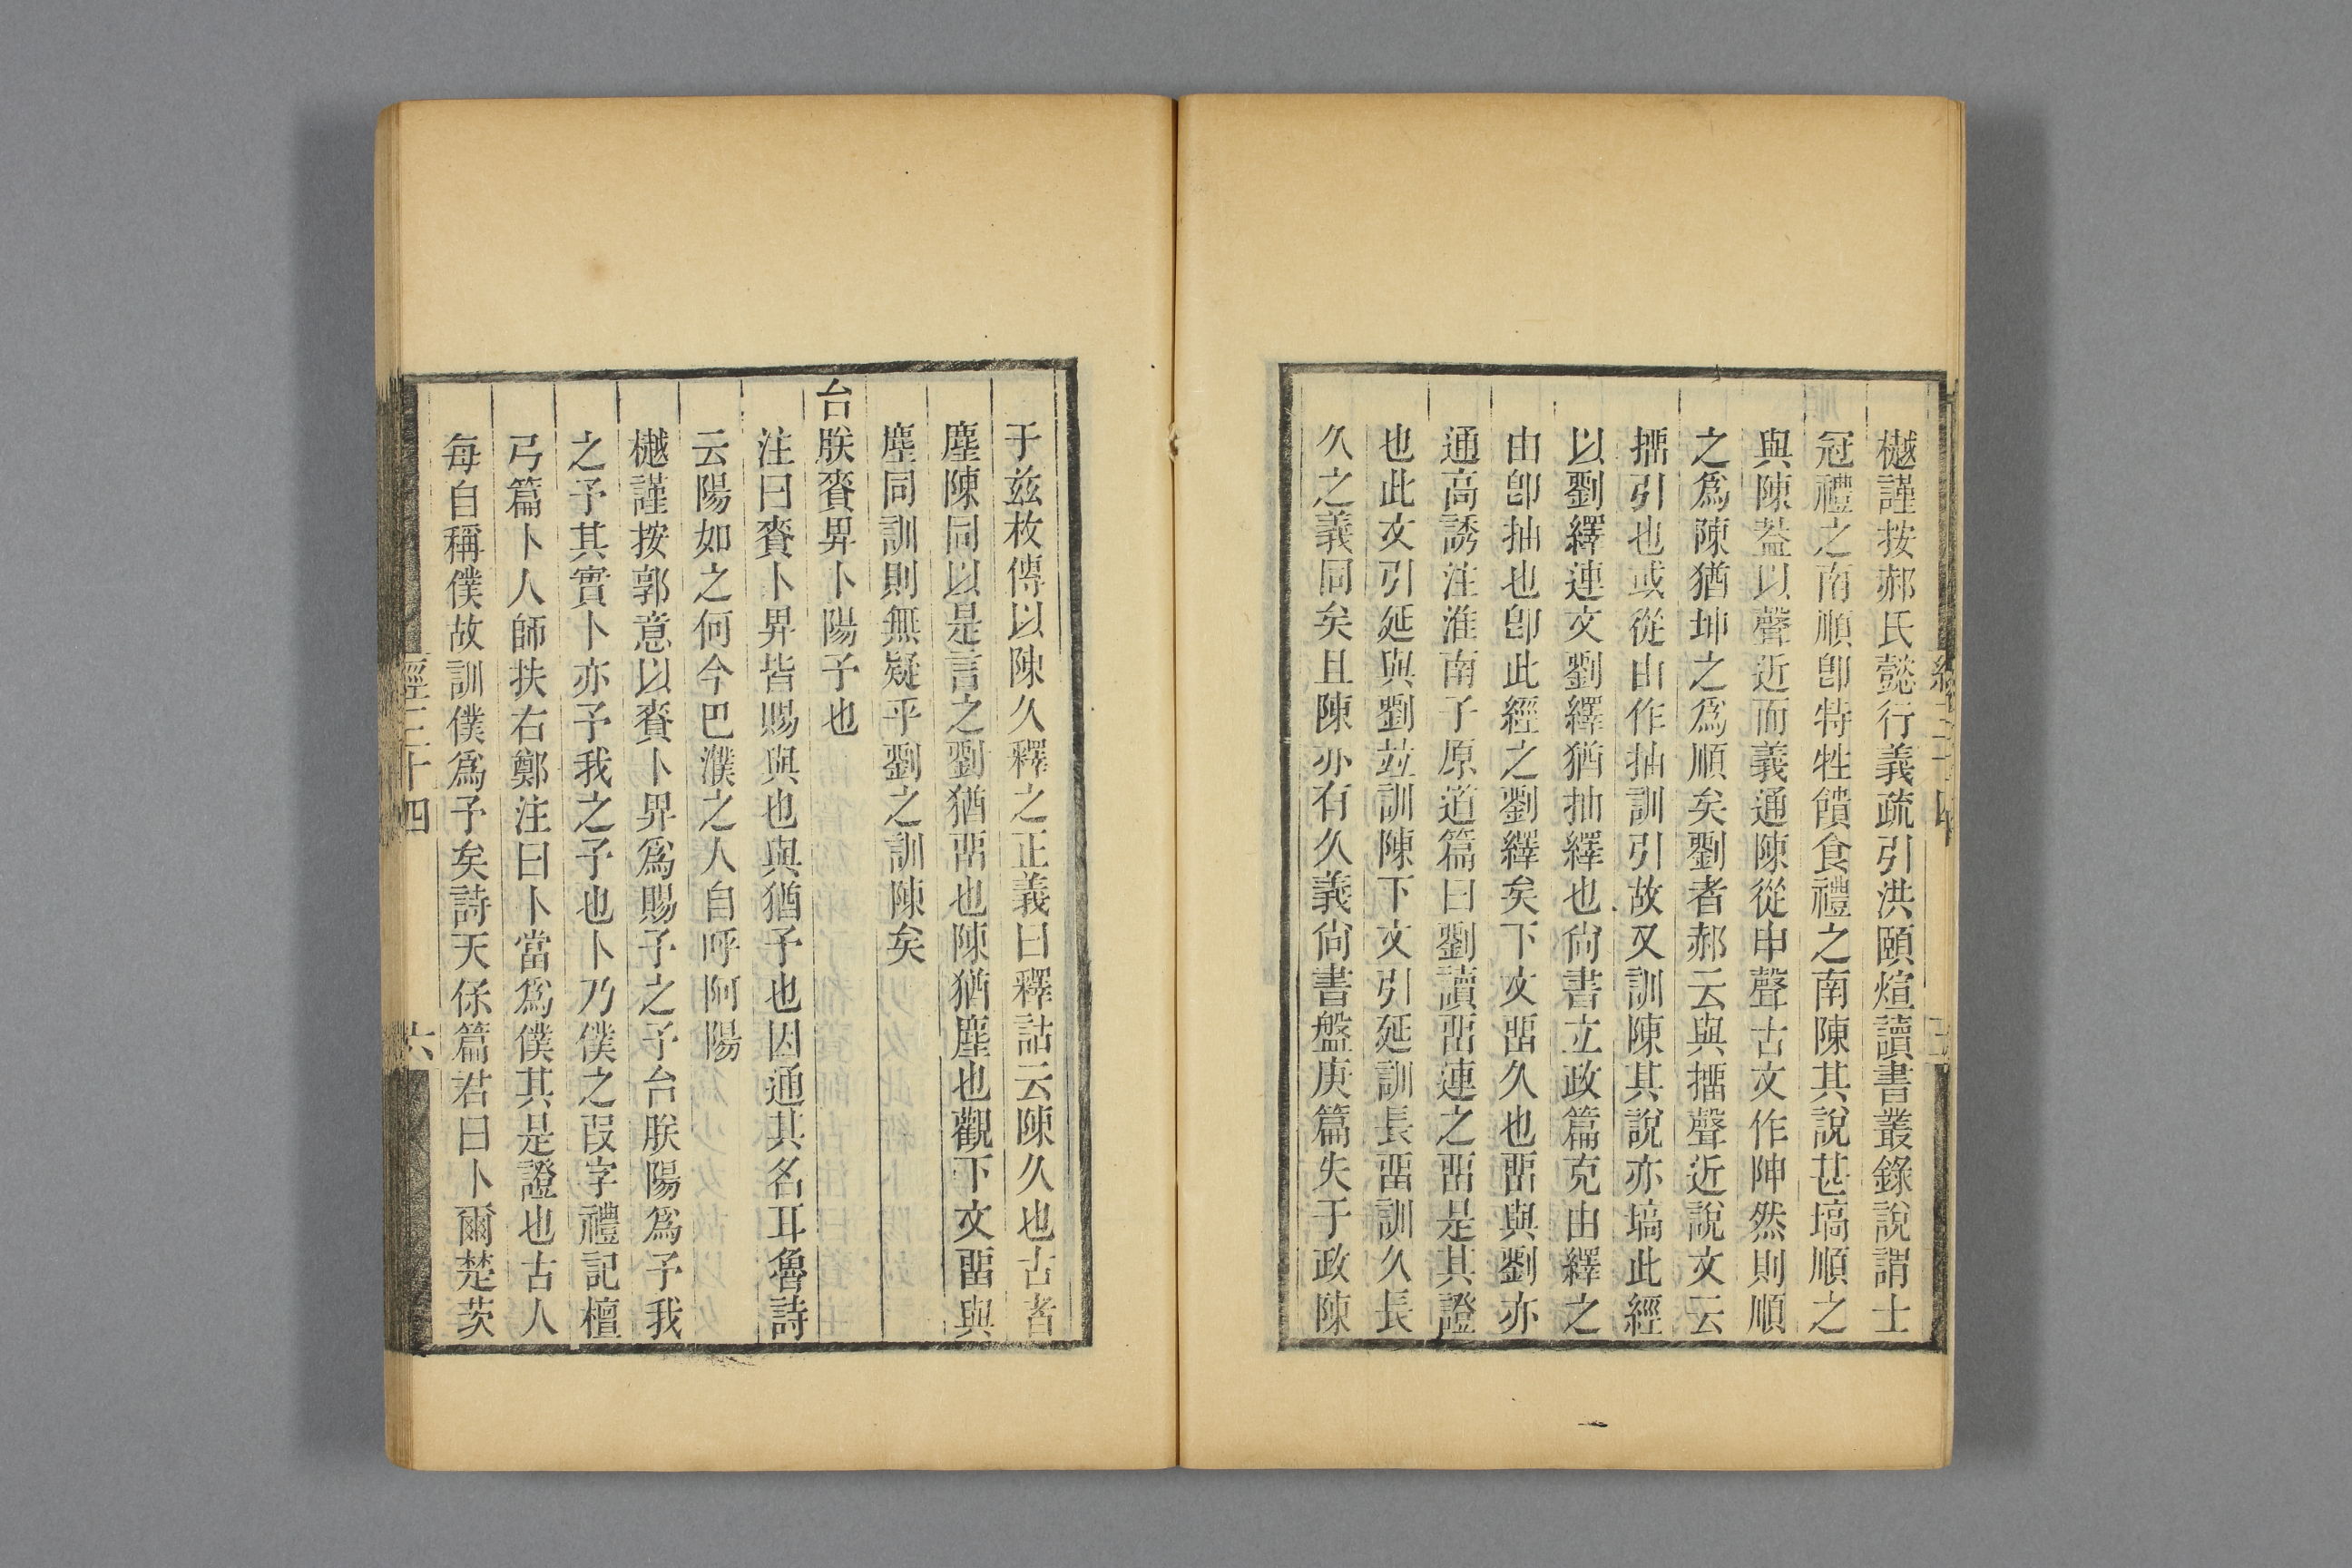 樾謹按郝氏懿行義疏引洪頤煊讀書叢錄說謂士
冠禮之南順卽特牲饋食禮之南陳其說甚塙順之
與陳葢以聲近而義通陳從申聲古文作陣然則順
之爲陳猶坤之爲順矣劉者郝云與擂聲近說文云
擂引也或從由作抽訓引故又訓陳其說亦塙此經
以劉繹連文劉繹猶抽繹也尙書立政篇克由繹之
由卽抽也卽此經之劉繹矣下文畱久也畱與劉亦
通高誘注淮南子原道篇曰劉讀畱連之畱是其證
也此文引延與劉竝訓陳下文引延訓長畱訓久長
久之義同矣且陳亦有久義尙書盤庚篇失于政陳
于兹枚傳以陳久釋之正義曰釋詁云陳久也古者
塵陳同以是言之劉猶畱也陳猶塵也觀下文畱與
塵同訓則無疑乎劉之訓陳矣
台朕賚畀卜陽予也
注曰賚卜畀皆賜與也與猶予也因通其名耳魯詩
云陽如之何今巴濮之人自呼阿陽
樾謹按郭意以賚卜畀爲賜予之予台朕陽爲予我
之予其實卜亦予我之予也卜乃僕之叚字禮記檀
弓篇卜人師扶右鄭注曰卜當爲僕其是證也古人
每自稱僕故訓僕爲予矣詩天保篇君曰卜爾楚茨
經三十四
六